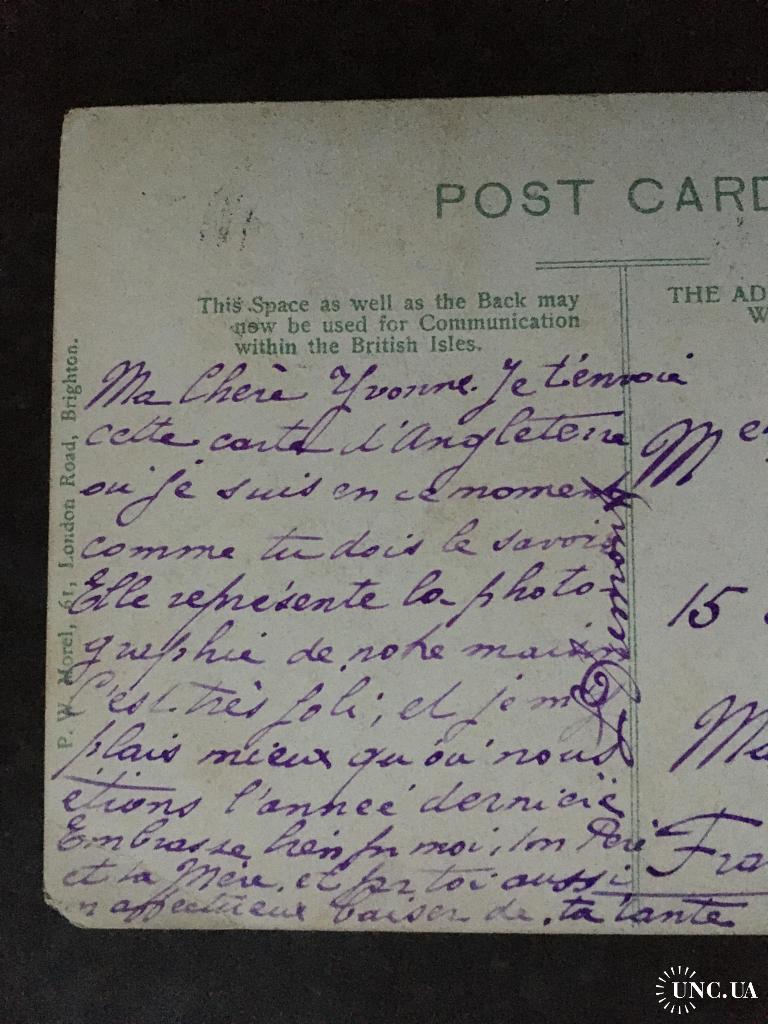 POST CARD
This Space as well as the Back may
now be used for Communication
within the British Isles.
THE AD
W
P. W. Morel, 61, London Road, Brighton.
Ma Chère Yvonne. Je t'envoie
cette carte d'Angleterre
où je suis en ce moment
comme tu dois le savoir
Elle représente la photo-
graphie de notre maison
C'est très joli; et je m'y
plais mieux qu'où nous
étions l'année dernière
Embrasse bien pr moi, ton Père
et ta Mère. et pr toi aussi
un affectueux baiser de ta tante
Dumont
M
15
Ma
Fra
UNC.UA